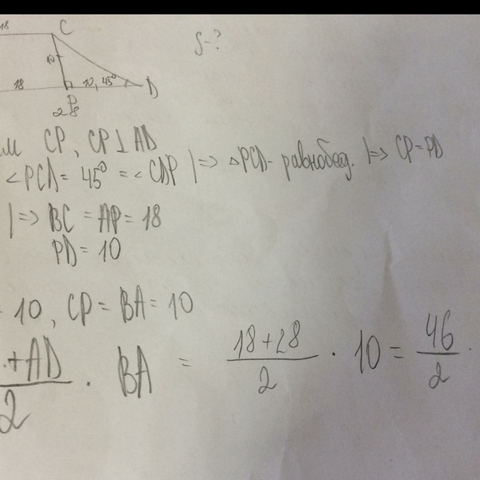 18 C S-?
10
18 10, 45° D
P
28
м CP, CP⊥AD
∠PCD = 45° = ∠CDP |⇒ △PCD- равнобед. |⇒ CP=PD
|⇒ BC = AP = 18
PD = 10
10, CP = BA = 10
+AD/2 · BA = 18+28/2 · 10 = 46/2 ·